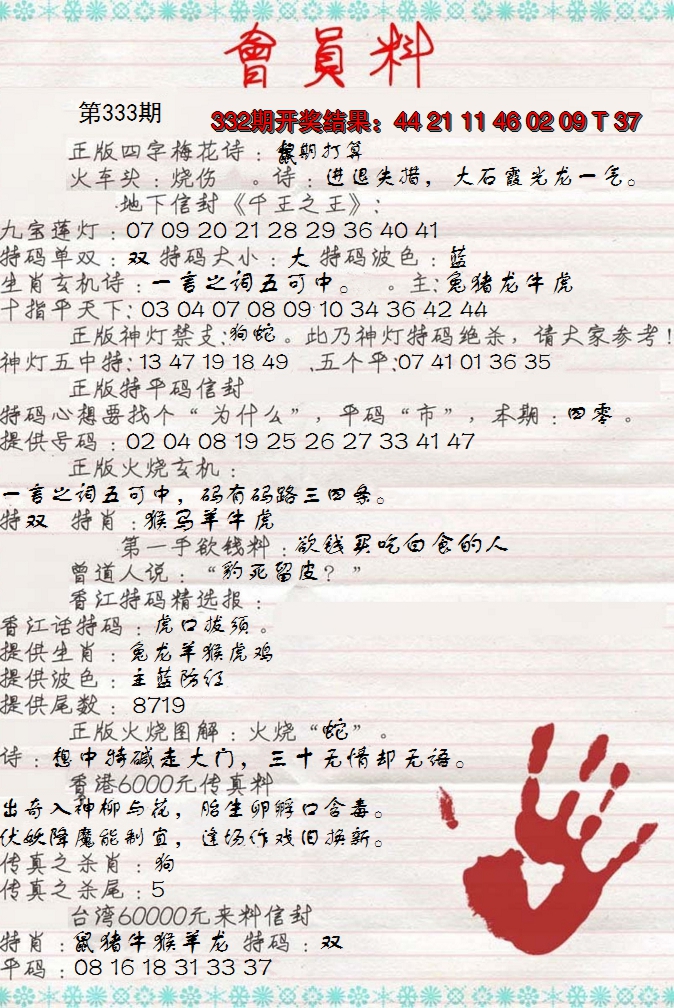 會員料
第333期
332期开奖结果：44 21 11 46 02 09 T 37
正版四字梅花诗：鼠期打算
火车头：烧伤 。诗：进退失措，大石霞光龙一气。
地下信封《千王之王》：
九宝莲灯：07 09 20 21 28 29 36 40 41
特码单双：双 特码大小：大 特码波色：蓝
生肖玄机诗：一言之词五可中。 。主：兔猪龙牛虎
十指平天下：03 04 07 08 09 10 34 36 42 44
正版神灯禁支：狗蛇。此乃神灯特码绝杀，请大家参考！
神灯五中特：13 47 19 18 49 .五个平：07 41 01 36 35
正版特平码信封
特码心想要找个“为什么”，平码“市”，本期：四零。
提供号码：02 04 08 19 25 26 27 33 41 47
正版火烧玄机：
一言之词五可中，码有码路三四条。
特双 特肖：猴马羊牛虎
第一手欲钱料：欲钱买吃白食的人
曾道人说：“豹死留皮？”
香江特码精选报：
香江话特码：虎口拔须。
提供生肖：兔龙羊猴虎鸡
提供波色：主蓝防红
提供尾数：8719
正版火烧图解：火烧“蛇”。
诗：想中特碱走大门，三十无情却无语。
香港6000元传真料
出奇入神柳与花，胎生卵孵口含毒。
伏妖降魔能制宜，逢场作戏旧换新。
传真之杀肖：狗
传真之杀尾：5
台湾60000元来料信封
特肖：鼠猪牛猴羊龙 特码：双
平码：08 16 18 31 33 37